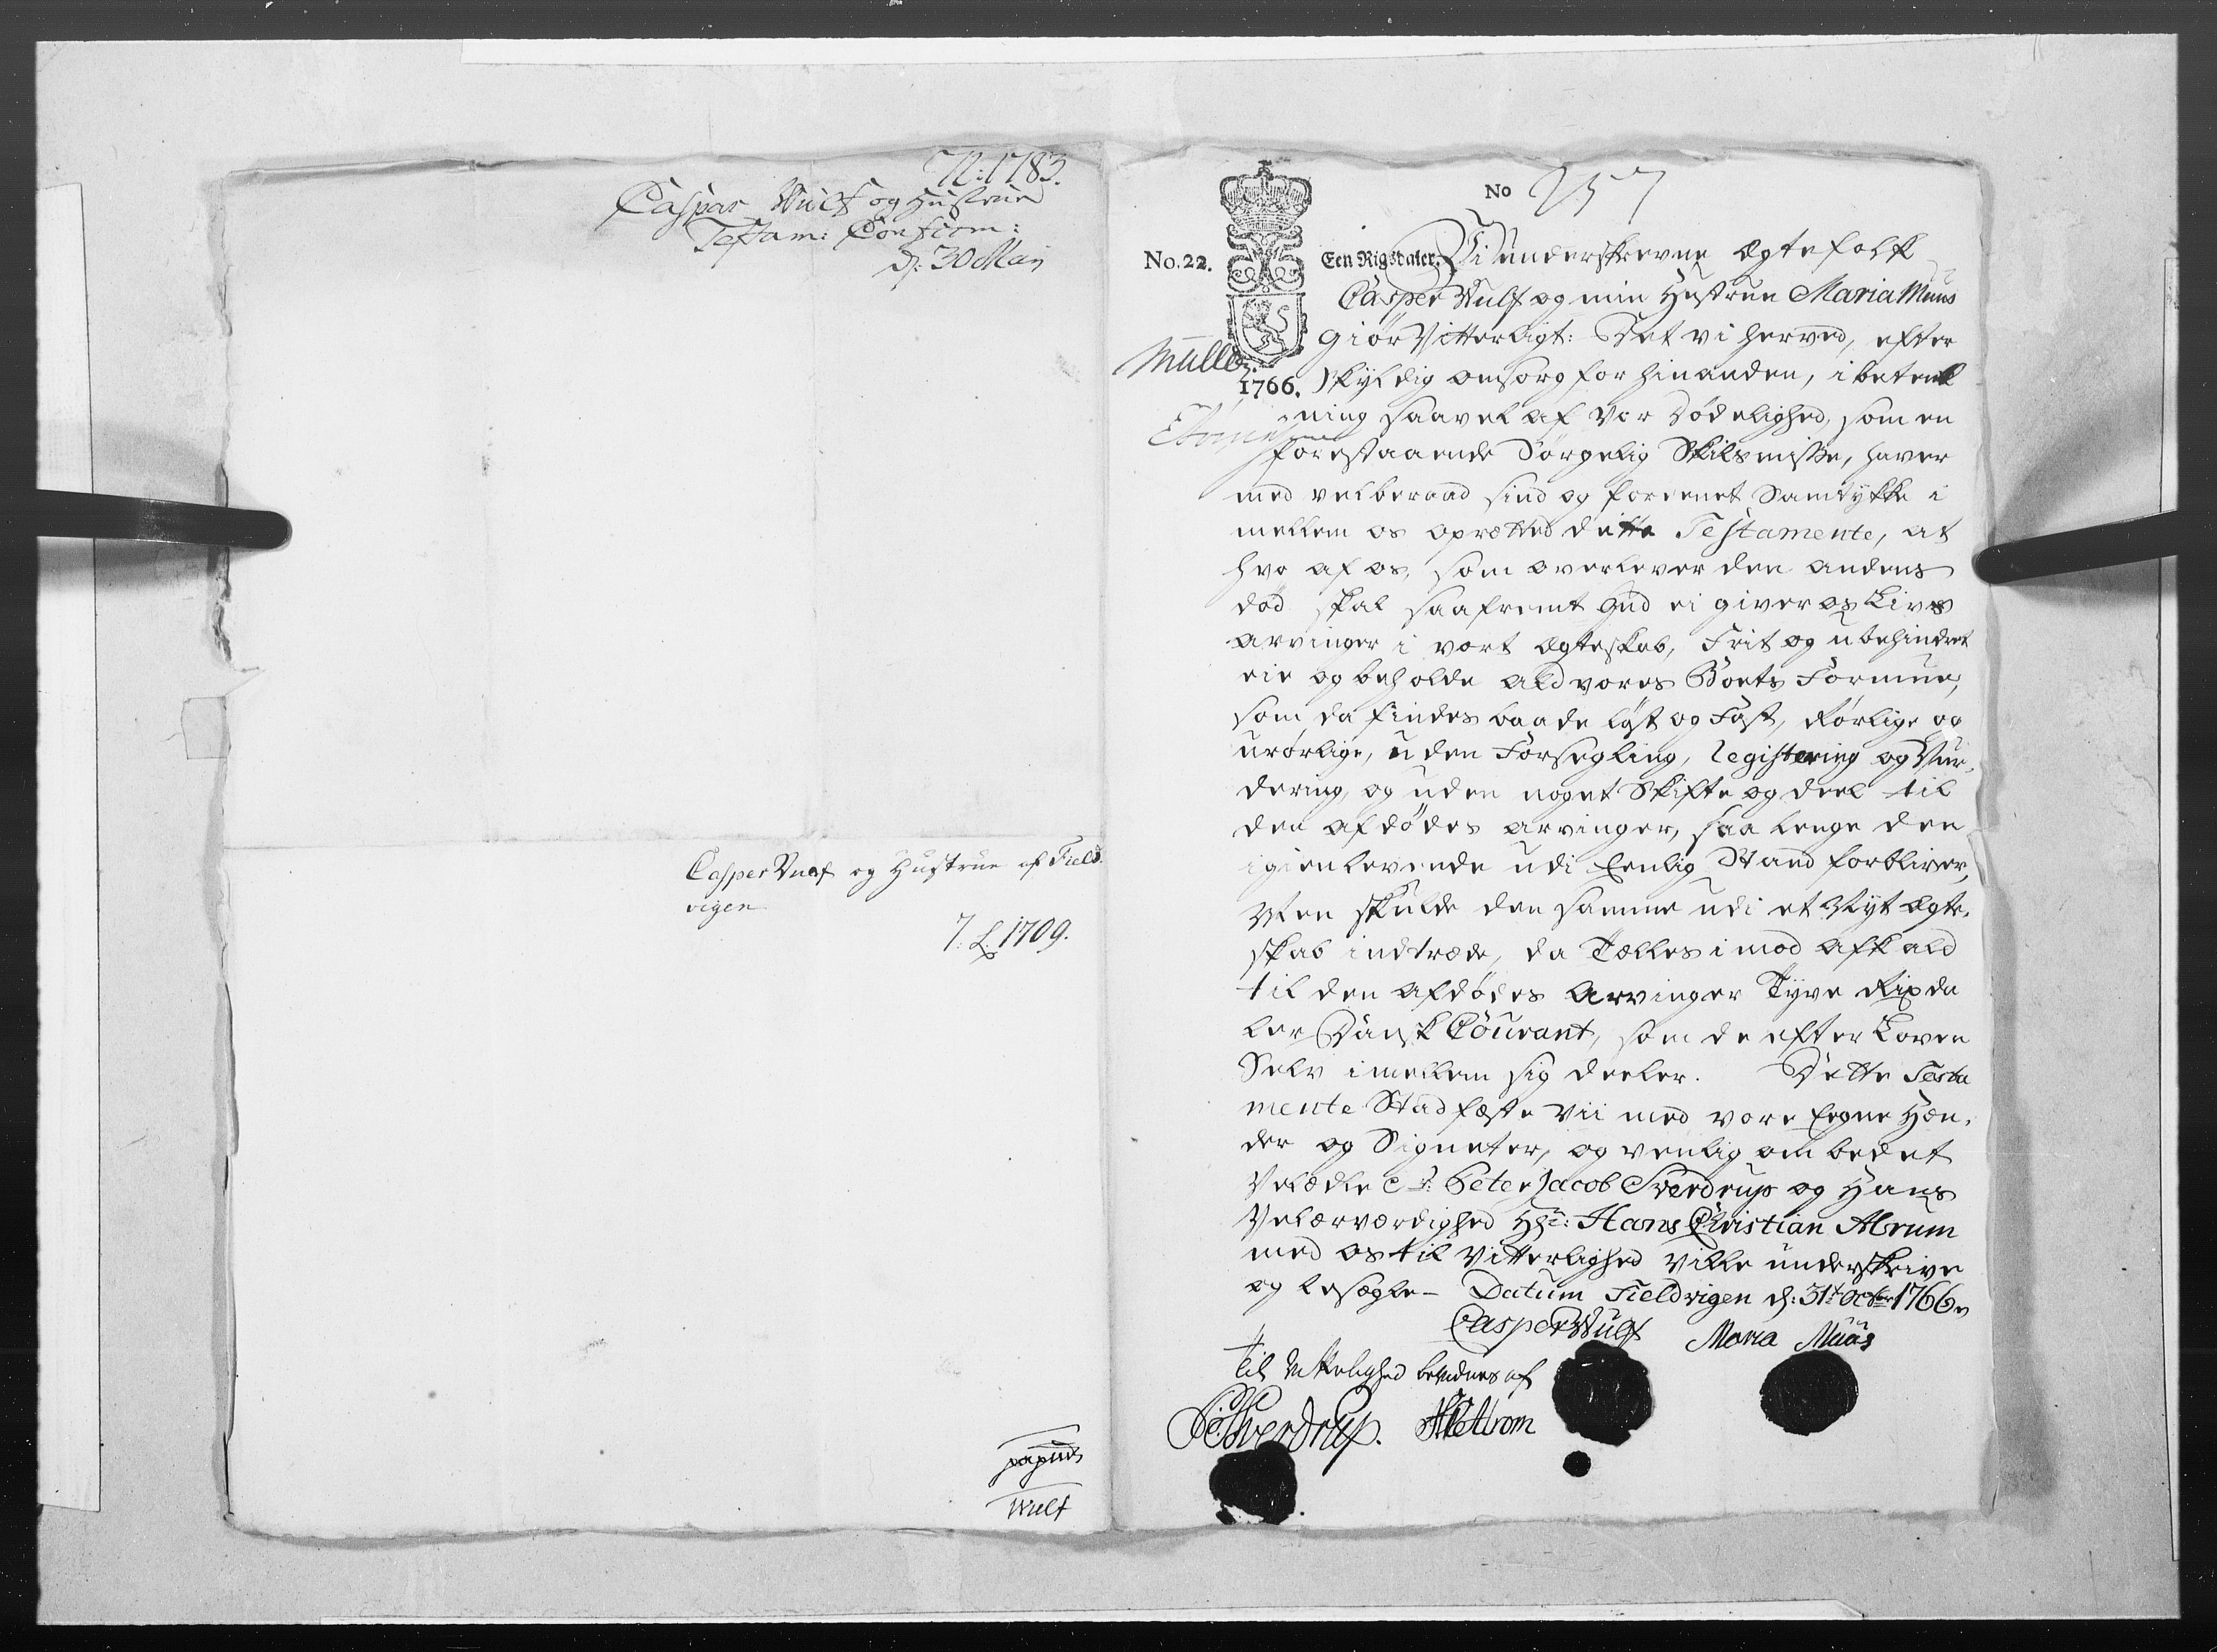 N: 1783.
Caspar Wulf og Hustrue
Testam: Confirm:
d: 30 Maij
Casper Wulf og Hustrue af Field-
vigen
7: L: 1709.
Wulf
No 257
No. 22.
Een Rigsdaler.
Müller.
1766.
Vi underskrevne Ægtefolk
Casper Wulf og min Hustrue Maria Muus
Giør Vitterligt: Det vi herved, efter
skyldig omsorg for hinanden, i betenk
ning saavel af vor Dødelighed, som en
forestaaende Sørgelig Skilsmisse, haver
med velberaad sind og foreenet Samtykke i
mellem os oprætted dette Testamente, at
hvo af os, som overlever den andens
død skal saafremt Gud ei giver os Livs
arvinger i vort Ægteskab, Frit og ubehindret
eie og beholde ald vores Boets Formue,
som da findes baade løst og Fast, Rørlige og
urørlige, uden Forsegling, Registering og Vur-
dering, og uden noget Skifte og deel til
den afdødes arvinger, saa lenge den
igienlevende udi Eenlig Stand forbliver,
Men skulde den samme udi et Nyt Ægte-
skab indtræde, da Tælles imod afkald
til den afdødes Arvinger Tyve Rixda
ler Dansk Courant, som de efter Loven
Selv imellem sig deeler. Dette Testa
mente Stadfæste Vii med vore Egne Hæn-
der og Signeter, og venlig ombedet
Velædle Sr: Peter Jacob Sverdrup og Hans
Velærværdighed Hr: Hans Christian Abrum
med os til Vitterlighed ville underskrive
og besegle - Datum Fieldvigen d: 31t Octbr 1766
Casper Wulf Maria Muus
Til Vitterlighed bevidnes af
PJSverdrup. HCAbrom